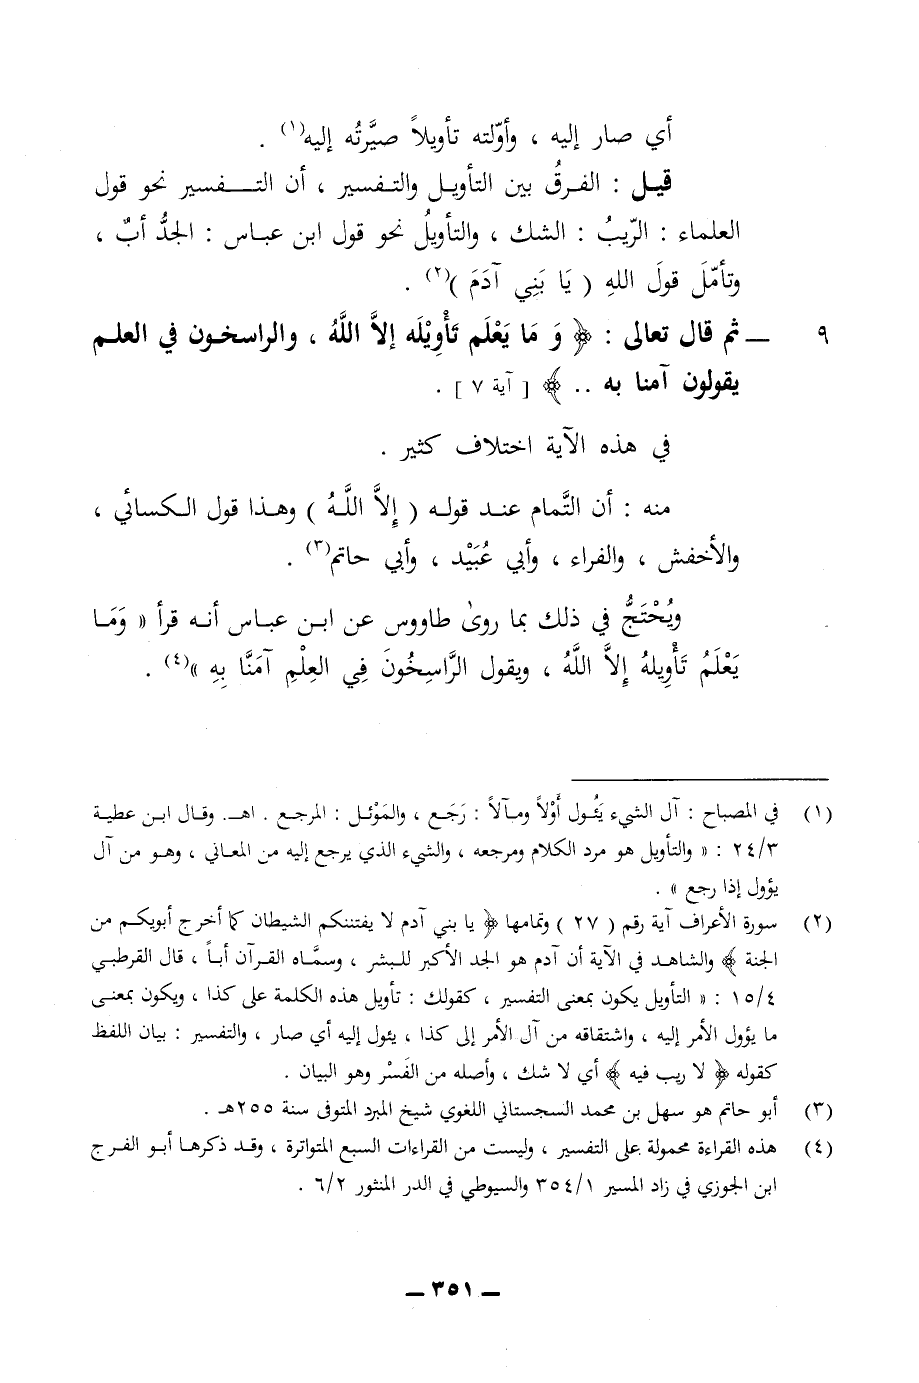 أي صار إليه ، وأوّلته تأويلاً صيَّرتُه إليه(١) .
قيل : الفرقُ بين التأويل والتفسير ، أن التـــفسير نحو قول
العلماء : الرّيبُ : الشك ، والتأويلُ نحو قول ابن عباس : الجدُّ أبٌ ،
وتأمّلَ قولَ اللهِ ( يَا بَنِي آدَمَ )(٢) .
٩ ــ ثم قال تعالى : ﴿ وَ مَا يَعْلَم تَأْوِيْلَه إلاَّ اللَّهُ ، والراسخون في العلم
يقولون آمنا به .. ﴾ [ آية ٧ ] .
في هذه الآية اختلاف كثير .
منه : أن التَّمام عند قوله ( إِلاَّ اللَّهُ ) وهذا قول الكسائي ،
والأخفش ، والفراء ، وأبي عُبَيْد ، وأبي حاتم(٣) .
ويُحْتَجُّ في ذلك بما روىٰ طاووس عن ابن عباس أنه قرأ « وَمَا
يَعْلَمُ تَأْوِيلهُ إِلاَّ اللَّهُ ، ويقول الرَّاسِخُونَ فِي العِلْمِ آمَنَّا بِهِ »(٤) .
(١) في المصباح : آل الشيء يَئُول أَوْلاً ومآلاً : رَجَع ، والمَوْئل : المرجع . اهـ. وقال ابن عطية
٢٤/٣ : « والتأويل هو مرد الكلام ومرجعه ، والشيء الذي يرجع إليه من المعاني ، وهو من آل
يؤول إذا رجع » .
(٢) سورة الأعراف آية رقم ( ٢٧ ) وتمامها ﴿ يا بني آدم لا يفتننكم الشيطان كما أخرج أبويكم من
الجنة ﴾ والشاهد في الآية أن آدم هو الجد الأكبر للبشر ، وسمَّاه القرآن أباً ، قال القرطبي
١٥/٤ : « التأويل يكون بمعنى التفسير ، كقولك : تأويل هذه الكلمة على كذا ، ويكون بمعنى
ما يؤول الأمر إليه ، واشتقاقه من آل الأمر إلى كذا ، يئول إليه أي صار ، والتفسير : بيان اللفظ
كقوله ﴿ لا ريب فيه ﴾ أي لا شك ، وأصله من الفَسْر وهو البيان .
(٣) أبو حاتم هو سهل بن محمد السجستاني اللغوي شيخ المبرد المتوفى سنة ٢٥٥هـ .
(٤) هذه القراءة محمولة على التفسير ، وليست من القراءات السبع المتواترة ، وقد ذكرها أبو الفرج
ابن الجوزي في زاد المسير ٣٥٤/١ والسيوطي في الدر المنثور ٦/٢ .
ــ ٣٥١ ــ